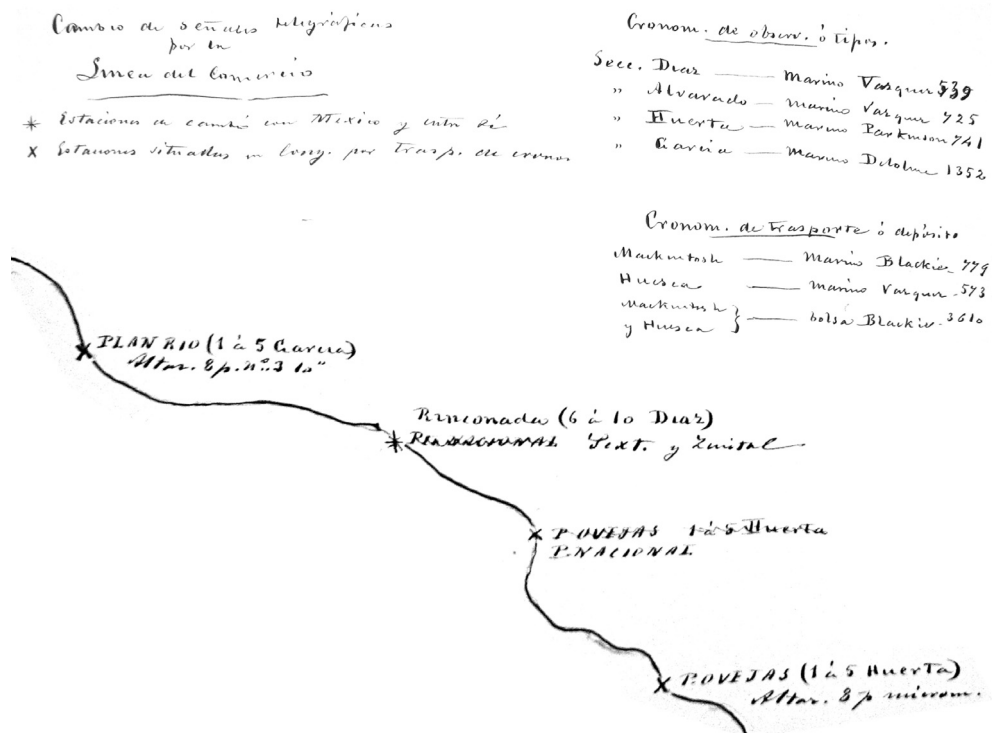 Cambio de señales telegráficas
por la
Linea del Comercio
* Estaciones de cambio con Mexico y entre sí
x Estaciones situadas en Long. por Trasp. de cronos
Cronom. de observ. ó tipos.
Secc. Diaz — Marino Vasquez 539
" Alvarado — Marino Vasquez 725
" Huerta — Marino Parkinson 741
" Garcia — Marino 1352
Cronom. de trasporte ó depósito
Mackintosh — Marino Blackie 779
Huesca — Marino Vasquez 573
Mackintosh
y Huesca } — bolsa Blackie 3610
x PLAN RIO (1 á 5 Garcia)
Altaz. 8 p. nº. 3 10"
Rinconada (6 á 10 Diaz)
* Sext. y Zenital
x P. OVEJAS 1 á 5 Huerta
P. NACIONAL
x P. OVEJAS (1 á 5 Huerta)
Altaz. 8 p microm.